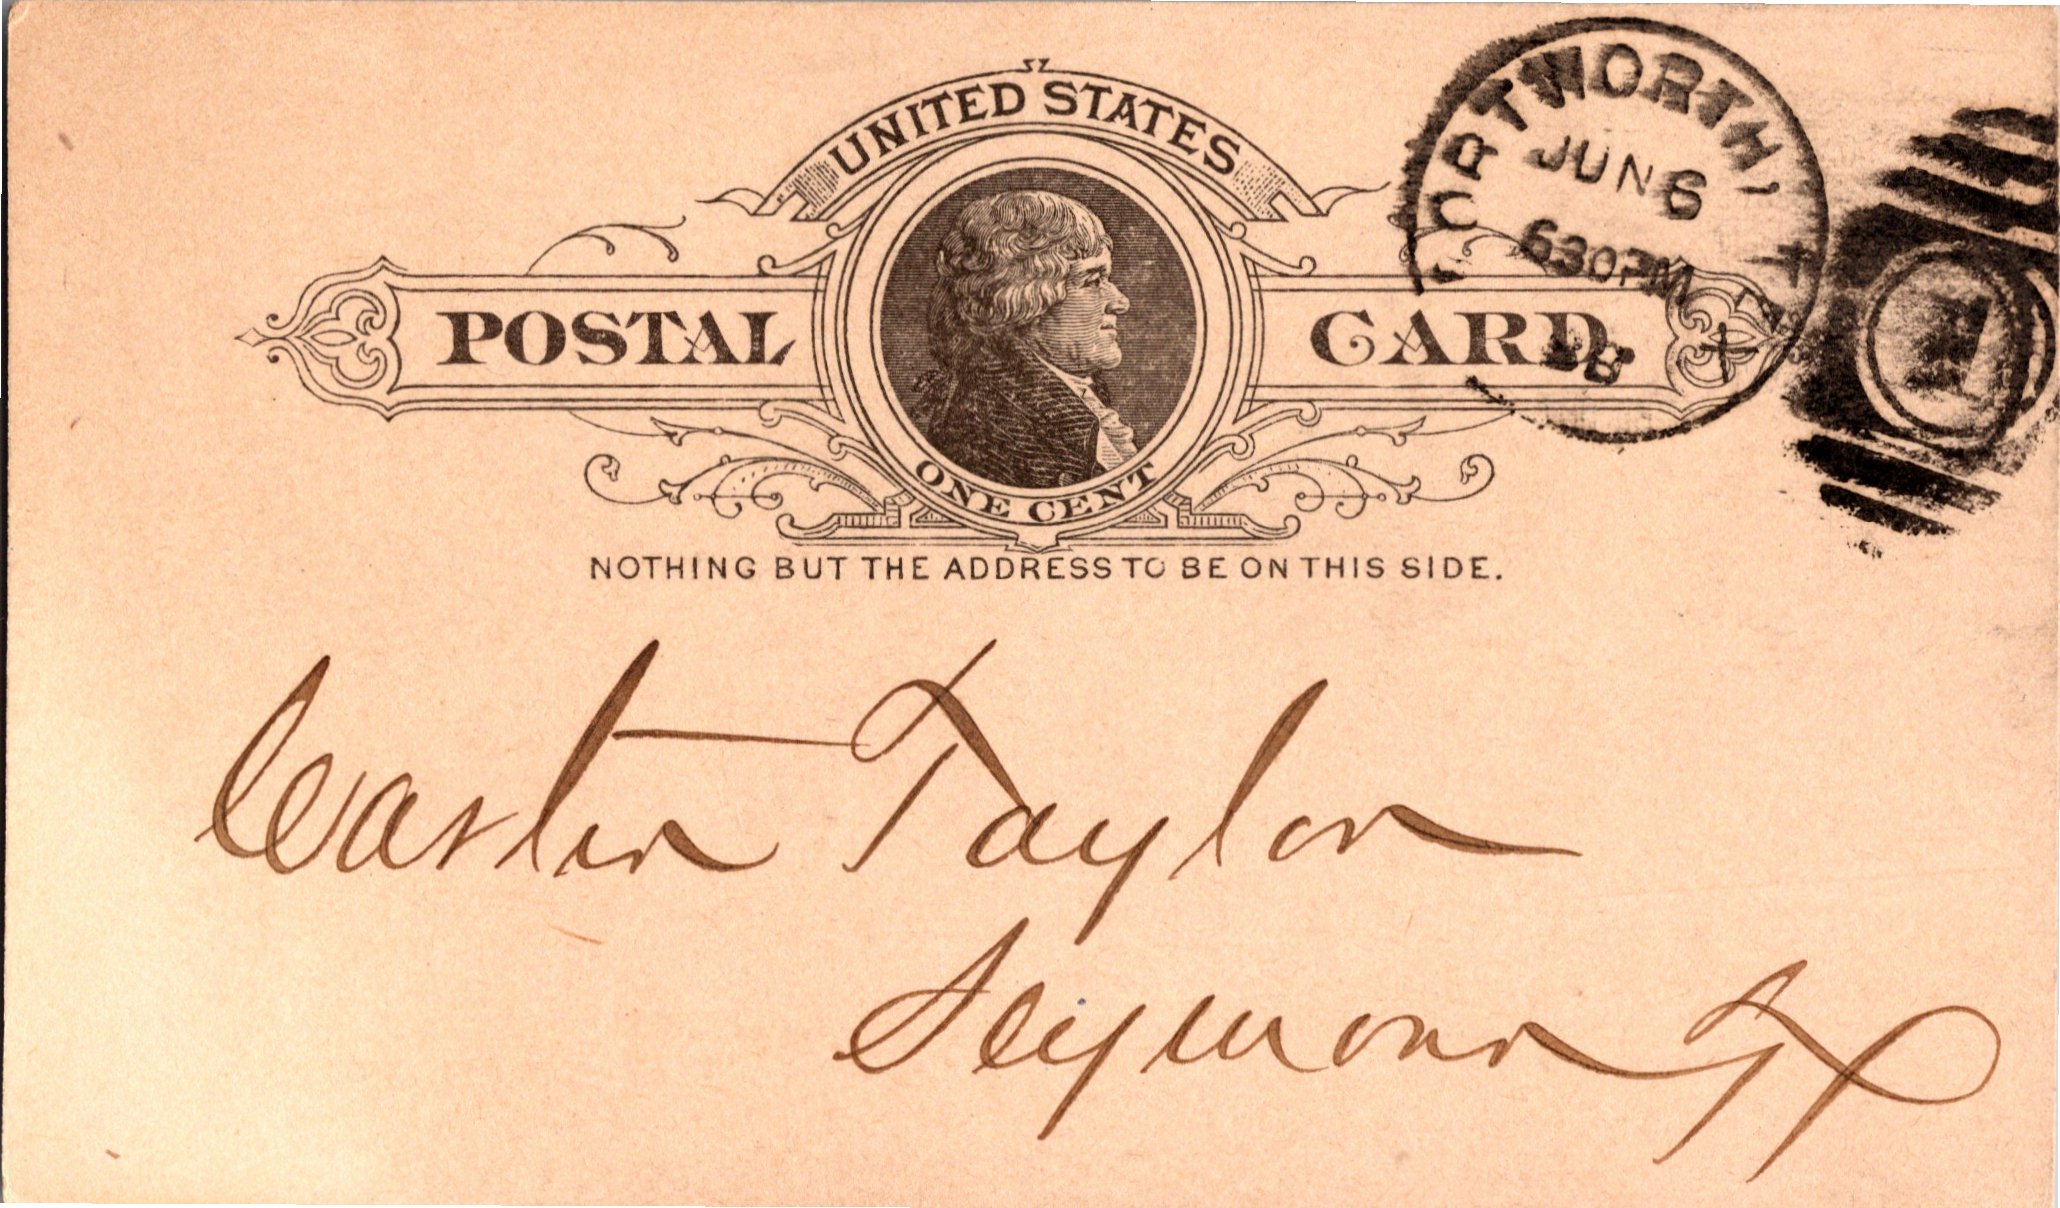 UNITED STATES
POSTAL CARD
ONE CENT
NOTHING BUT THE ADDRESS TO BE ON THIS SIDE.
FORTWORTH,
JUN 6
630PM
88
Taylor
Seymour